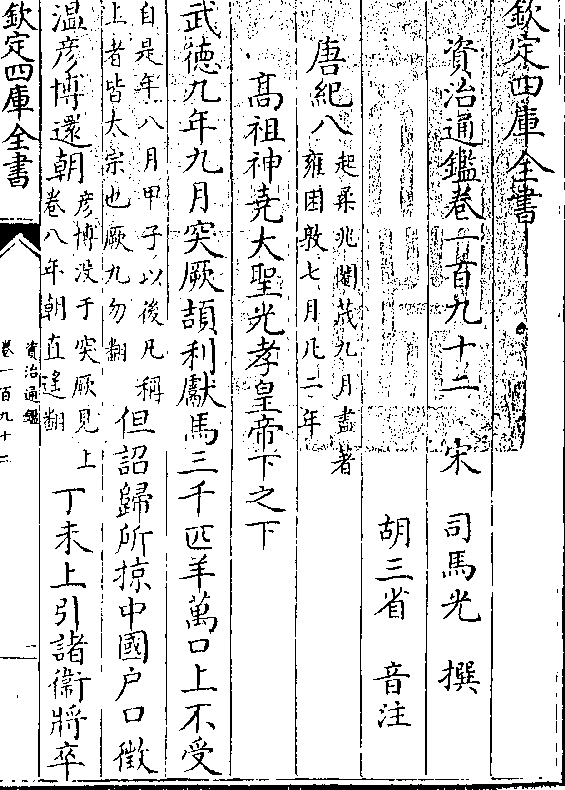 欽定四庫全書
資治通鑑卷一百九十二 宋 司馬光 撰
胡三省 音注
唐紀八
起柔兆閹茂九月盡著
雍困敦七月凡二年
髙祖神堯大聖光孝皇帝下之下
武徳九年九月突厥頡利獻馬三千匹羊萬口上不受
自是年八月甲子以後凡稱
上者皆太宗也厥九勿翻
但詔歸所掠中國户口徵
温彦博還朝
彦博沒于突厥見上
卷八年朝直遥翻
丁未上引諸衛將卒
欽定四庫全書
資治通鑑
卷一百九十二
一